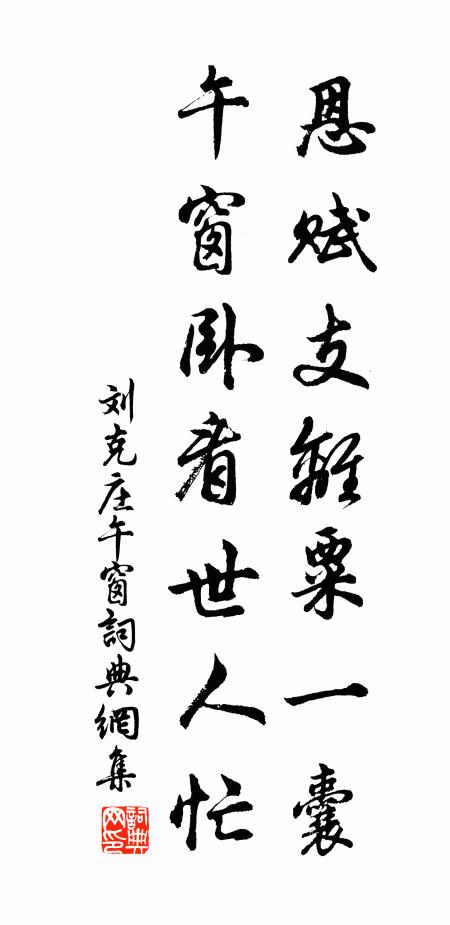 恩赋支離粟一囊
午窗卧看世人忙
刘克庄午窗詞典網集
詞典
网印